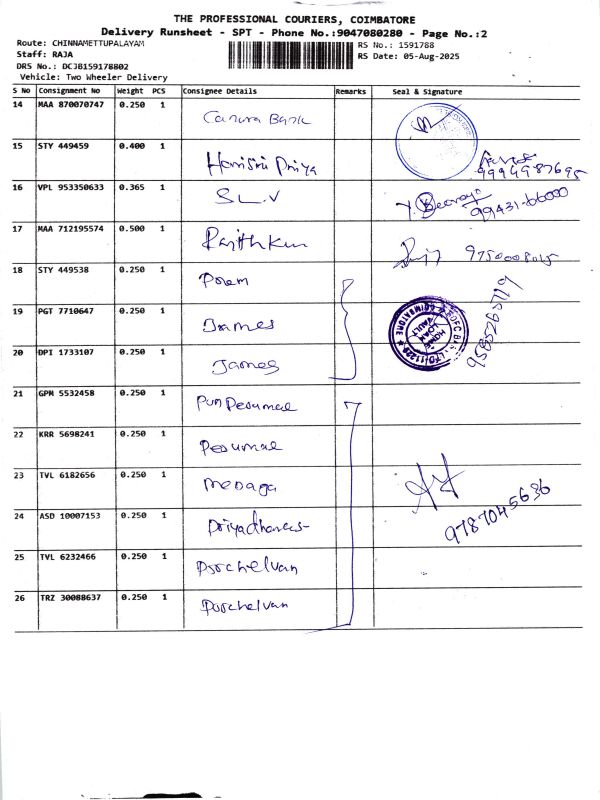 THE PROFESSIONAL COURIERS, COIMBATORE
Delivery Runsheet - SPT - Phone No.:9047080280 - Page No.:2
Route: CHINNAMETTUPALAYAM
Staff: RAJA
DRS No.: DCJB159178802
Vehicle: Two Wheeler Delivery
RS No.: 1591788
RS Date: 05-Aug-2025
S No Consignment No Weight PCS Consignee Details Remarks Seal & Signature
14 MAA 870070747 0.250 1 Canara Bank
15 STY 449459 0.400 1 Harisri Priya
9994987695
16 VPL 953350633 0.365 1 S L V
99431-66000
17 MAA 712195574 0.500 1
9750008015
18 STY 449538 0.250 1 Prem
19 PGT 7710647 0.250 1 James
9585260719
20 DPI 1733107 0.250 1 James
HDFC BANK LTD
COIMBATORE
HOME LOAN VAULT
21 GPM 5532458 0.250 1 Pun Perumal
22 KRR 5698241 0.250 1 Perumal
23 TVL 6182656 0.250 1 Menaga
24 ASD 10007153 0.250 1
9787045636
25 TVL 6232466 0.250 1 Porchelvan
26 TRZ 30088637 0.250 1 Porchelvan